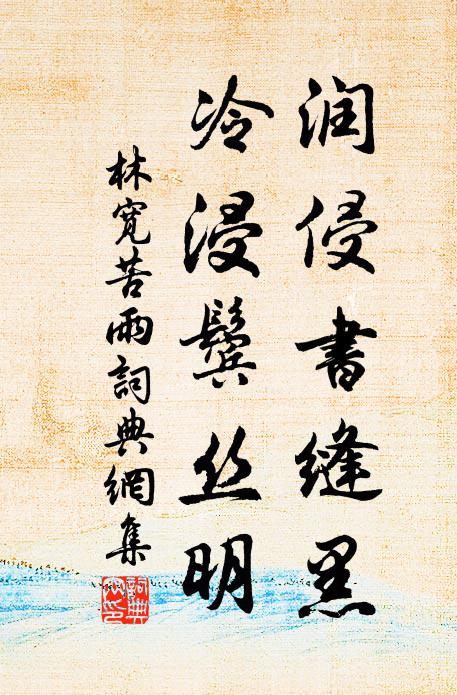 润侵书缝黑
冷浸鬓丝明
林宽苦雨词典網集